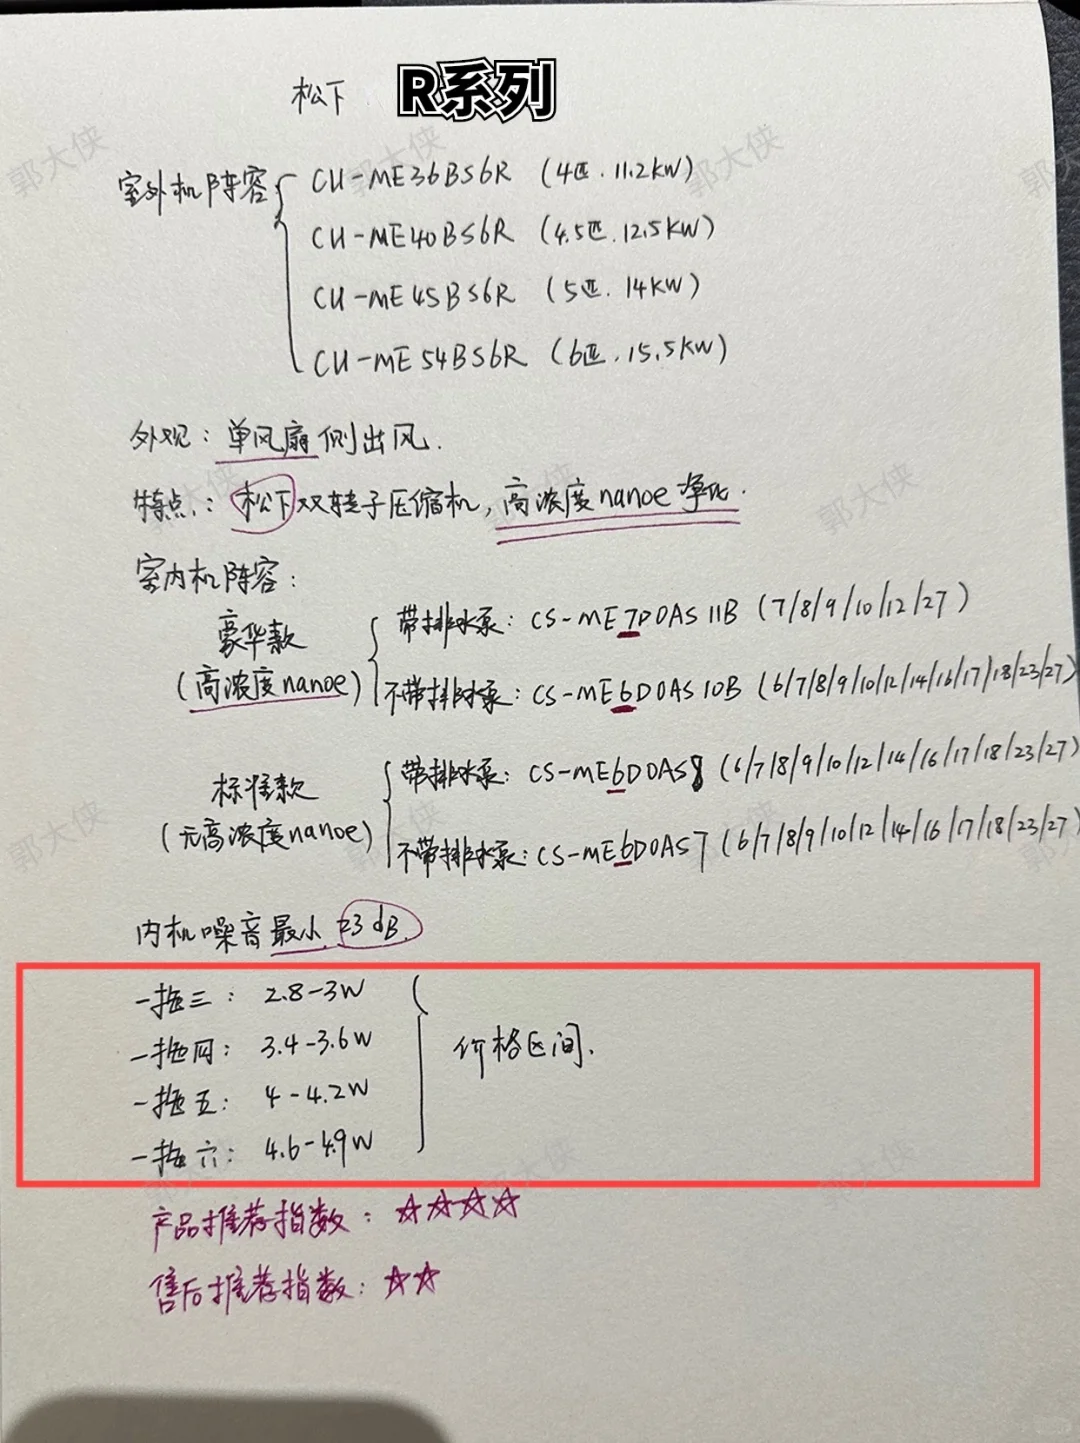 松下 R系列
室外机阵容 CU-ME36BS6R (4匹.11.2KW)
CU-ME40BS6R (4.5匹.12.5KW)
CU-ME45BS6R (5匹.14KW)
CU-ME54BS6R (6匹.15.5KW)
外观:单风扇侧出风.
特点:松下双转子压缩机,高浓度nanoe净化.
室内机阵容:
豪华款
(高浓度nanoe)
带排水泵:CS-ME7D0AS11B (7/8/9/10/12/27)
不带排水泵:CS-ME6D0AS10B (6/7/8/9/10/12/14/16/17/18/23/27)
标准款
(无高浓度nanoe)
带排水泵:CS-ME6D0AS8 (6/7/8/9/10/12/14/16/17/18/23/27)
不带排水泵:CS-ME6D0AS7 (6/7/8/9/10/12/14/16/17/18/23/27)
内机噪音最小 23dB.
一拖三:2.8-3W
一拖四:3.4-3.6W
一拖五:4-4.2W
一拖六:4.6-4.9W
价格区间.
产品推荐指数:☆☆☆☆
售后推荐指数:☆☆
郭大侠